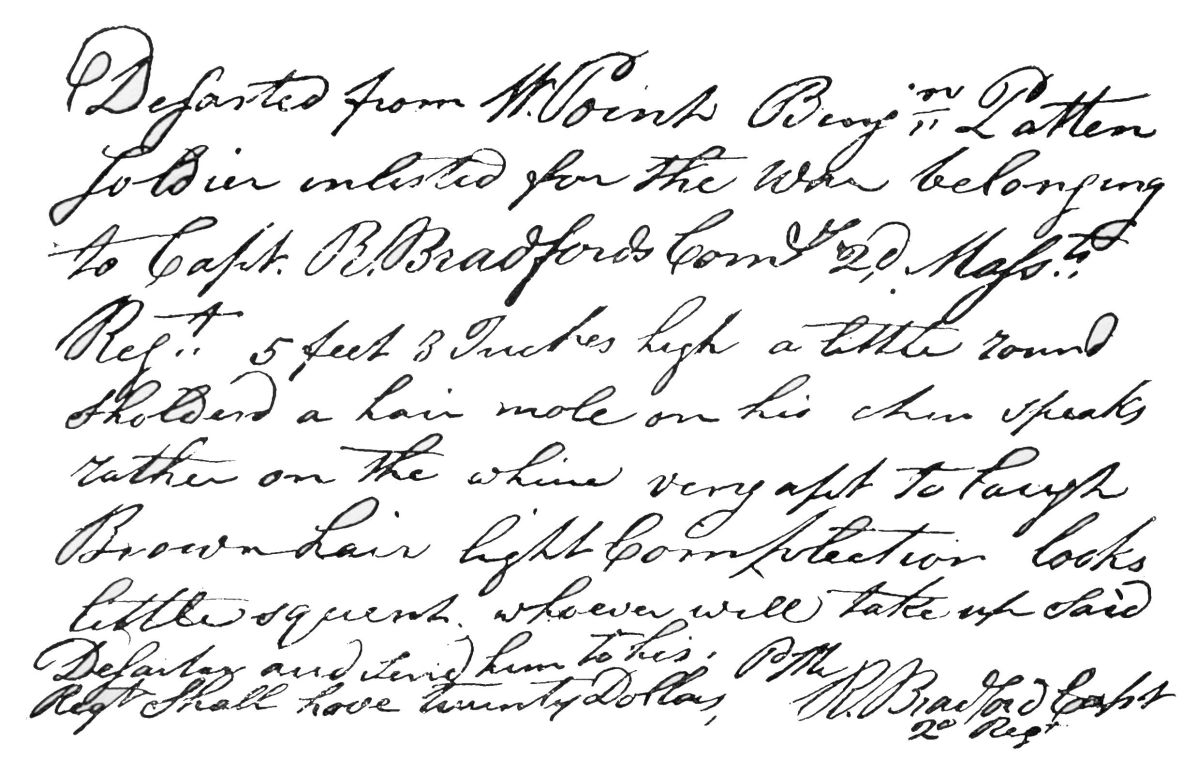 Desarted from W. Point Benjn Patten
Soldier inlisted for the War belonging
to Capt. R. Bradfords Comy 2d. Massts
Regt. 5 feet 3 Inches high a little round
sholderd a hair mole on his chin speaks
rather on the whine very apt to laugh
Brown hair light Complection looks
little squent. whoever will take up said
Desarter and send him to his
Regt Shall have twenty Dollars,
R. Bradford Capt
2d Regt